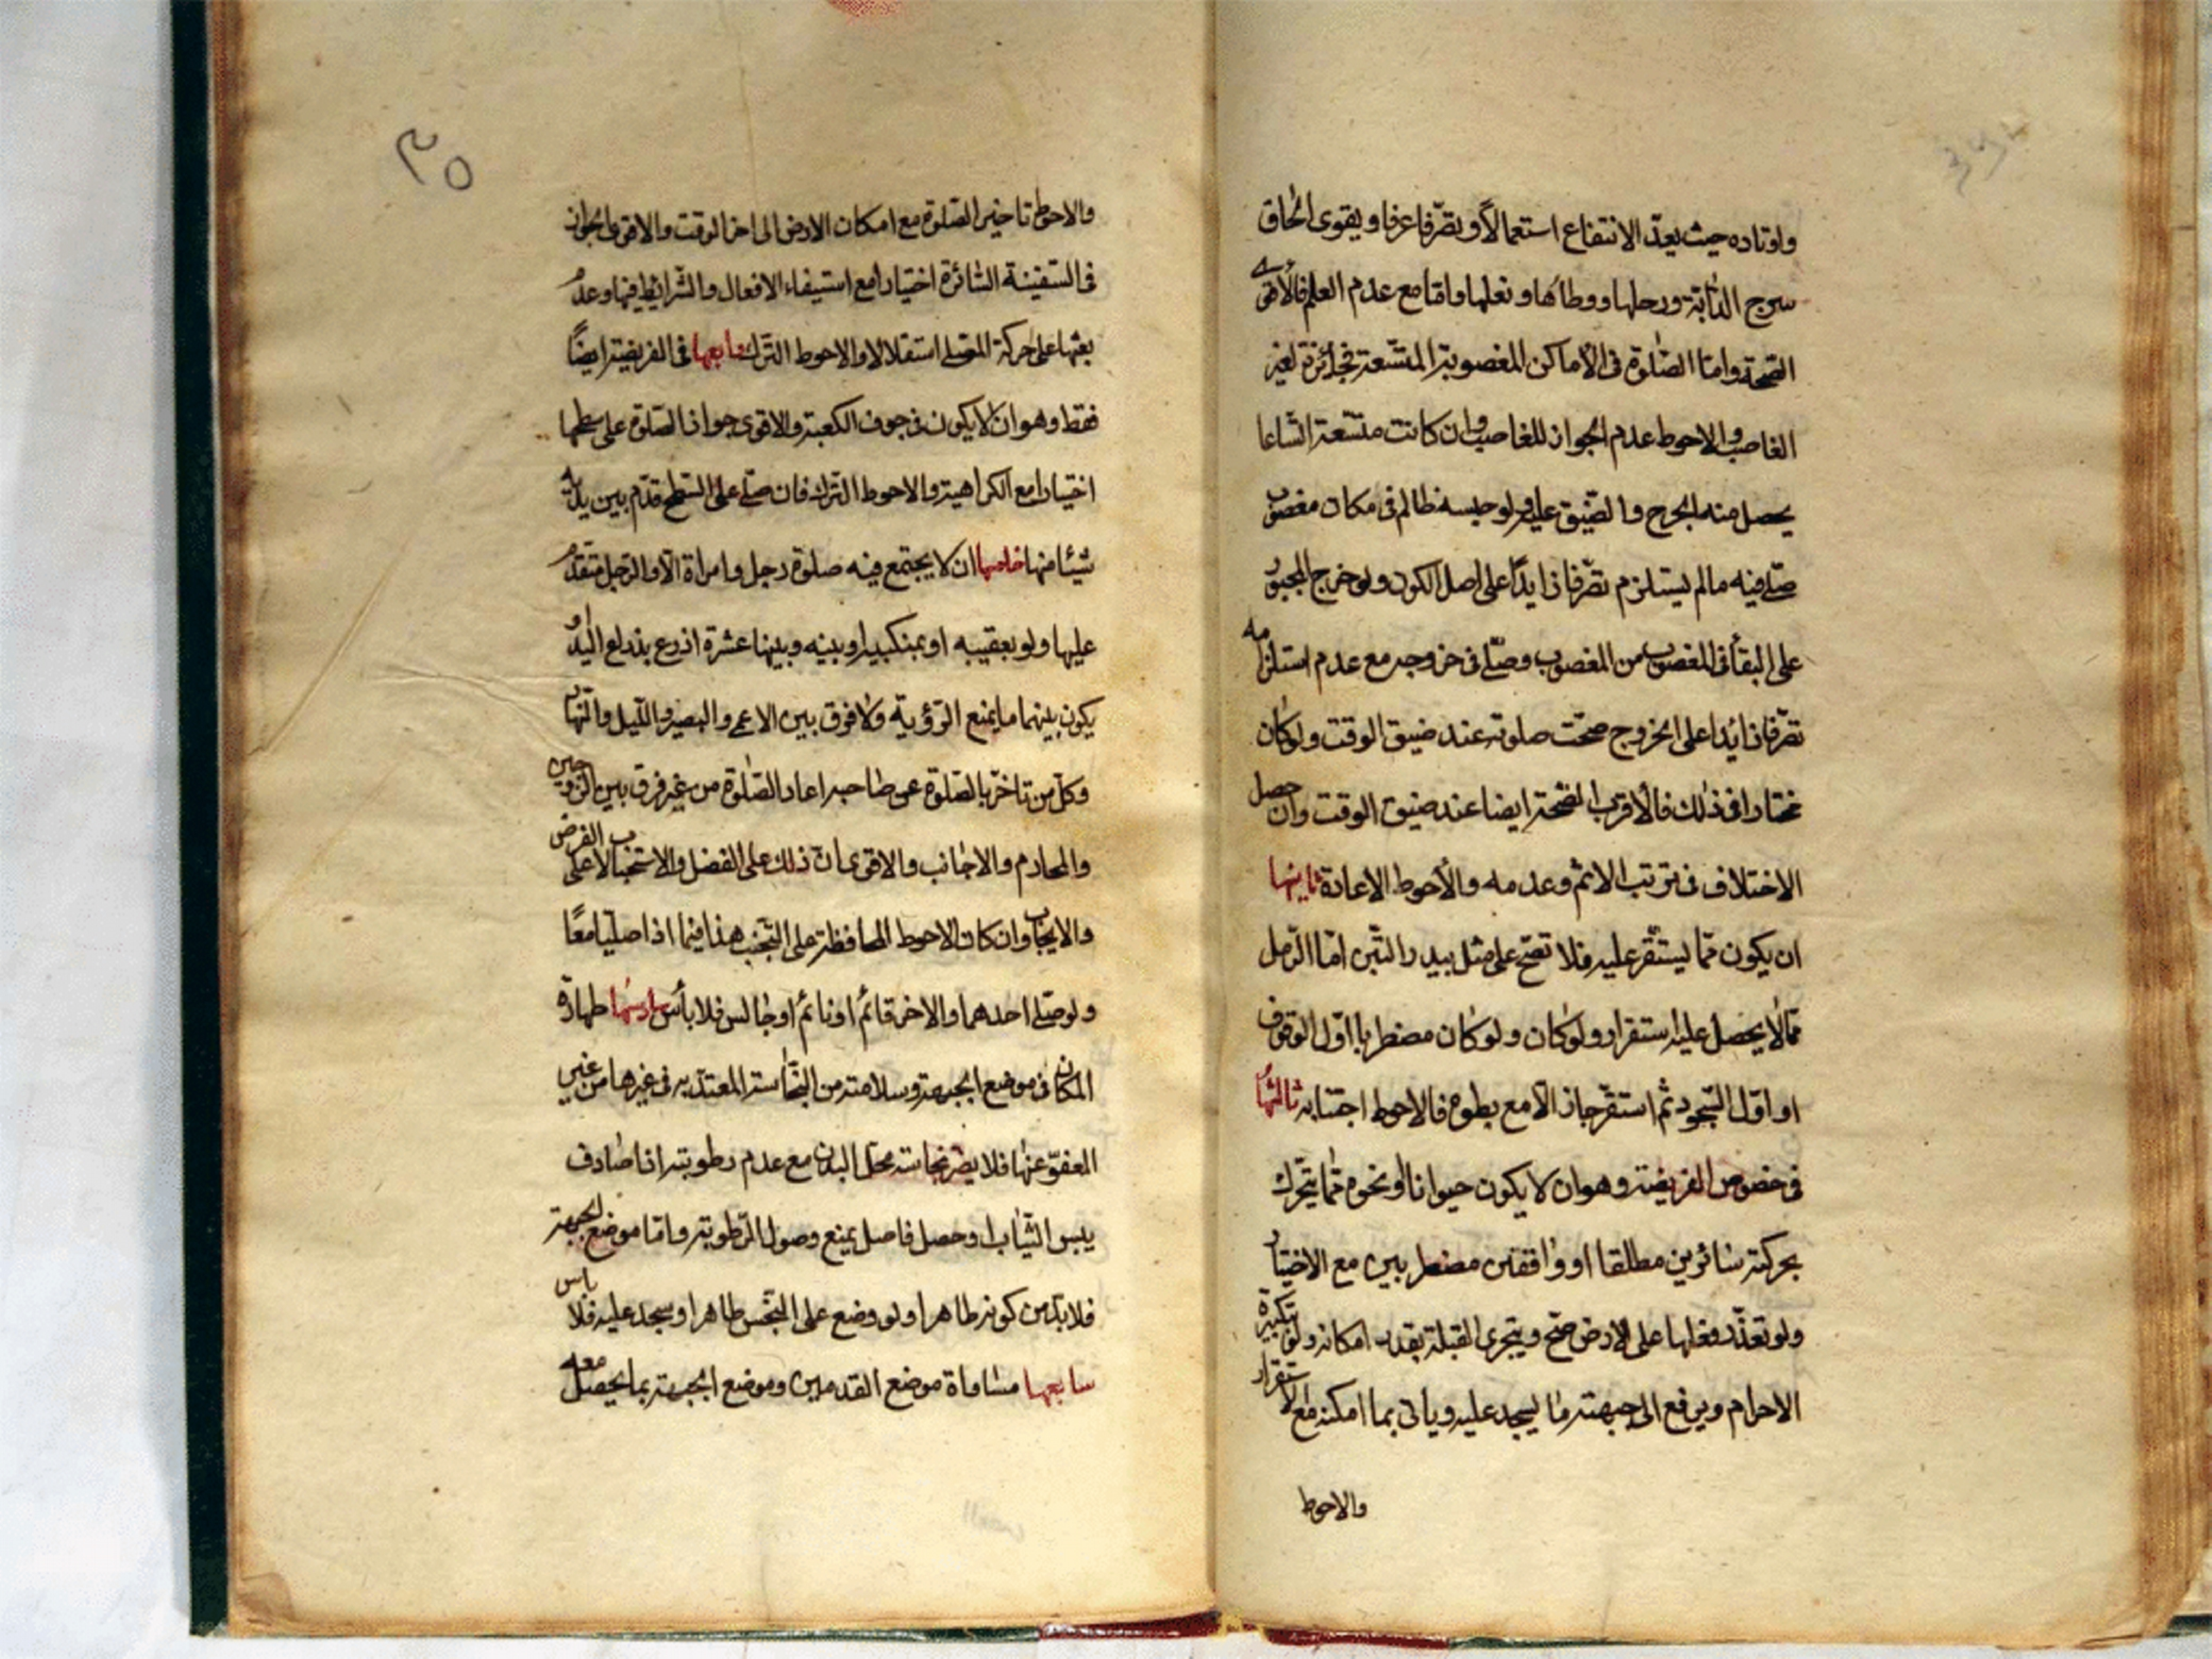 واوتاده حيث يعدّ الانتفاع استعمالاً وتصرّفا عرفا ويقوى الحاق
سرج الدابّة ورحلها ووطائها ونعلها وامّا مع عدم العلم فالاقوى
الصحّة وامّا الصّلوة فى الأماكن المغصوبة المتّسعة فجائزة لغير
الغاصب والاحوط عدم الجواز للغاصب وان كانت متّسعة اتّساعا
يحصل منه الحرج والضيق عليه ولو حبسه ظالم فى مكان مغصوب
صلّى فيه مالم يستلزم تصرّفا زايدًا على اصل الكون ولو خرج المجبور
على البقاء فى المغصوب من المغصوب وصلّى فى خروجه مع عدم استلزامه
تصرّفا زائدا على الخروج صحّت صلوته عند ضيق الوقت ولو كان
مختارا فى ذلك فالأقرب الصّحة ايضا عند ضيق الوقت وان حصل
الاختلاف فى ترتب الاثم وعدمه والأحوط الاعادة ثانيها
ان يكون ممّا يستقرّ عليه فلا تصحّ على مثل بيدر التّبن امّا الرّمل
ممّا لا يحصل عليه استقرار ولو كان ولو كان مضطربا اوّل الوقوف
او اوّل السّجود ثم استقرّ جاز الّا مع بطوء فالاحوط اجتنابه ثالثها
فى خصوص الفريضة وهو ان لا يكون حيوانا او نحوه ممّا يتحرّك
بحركته سائرين مطلقا او واقفين مضطربين مع الاختيار
ولو تعذّر فعلها على الارض صحّ ويتحرى القبلة بقدر امكانه ولو بتكبيرة
الاحرام ويرفع الى جبهته ما يسجد عليه وياتى بما امكنه مع الاستقرار
والاحوط
٣٥
والاحوط تاخير الصّلوة مع امكان الارض الى اخر الوقت والاقوى الجواز
فى السّفينة السّائرة اختيارا مع استيفاء الافعال والشّرايط فيها وعدم
بعثها على حركة المصلى استقلالا والاحوط التّرك رابعها فى الفريضة ايضًا
فقط وهو ان لا يكون فى جوف الكعبة والاقوى جواز الصّلوة على سطحها
اختيارا مع الكراهية والاحوط الترك فان صلّى على السّطح قدّم بين يديه
شيئا منها خامسها ان لا يجتمع فيه صلوة رجل وامراة الّا والرّجل متقدّم
عليها ولو بعقيبه او بمنكبيه او بينه وبينها عشرة اذرع بذراع اليد او
يكون بينهما ما يمنع الرّؤية ولا فرق بين الاعمى والبصير واللّيل والنّهار
وكلّ من تاخّر بالصّلوة عن صاحبه اعاد الصّلوة من غير فرق بين الزّوجين
والمحارم والاجانب والاقوى انّ ذلك على الفضل والاستحباب لا على الفرض
والايجاب وان كان الاحوط المحافظة على التّجنب هذا فيما اذا صلّيا معًا
ولو صلّى احدهما والاخر قائم او نائم او جالس فلا بأس سادسها طهارة
المكان فى موضع الجبهة وسلامته من النّجاسة المعتدّ به فى غيرها من غير
المعفوّ عنها فلا يضر نجاسة محلّ البدن مع عدم رطوبته اذا صادف
يبس الثّياب او حصل فاصل يمنع وصول الرّطوبة وامّا موضع الجبهة
فلابدّ من كونه طاهرا ولو وضع على النّجس طاهرا وسجد عليه فلا باس
سابعها مساواة موضع القدمين وموضع الجبهة بما يحصل معه